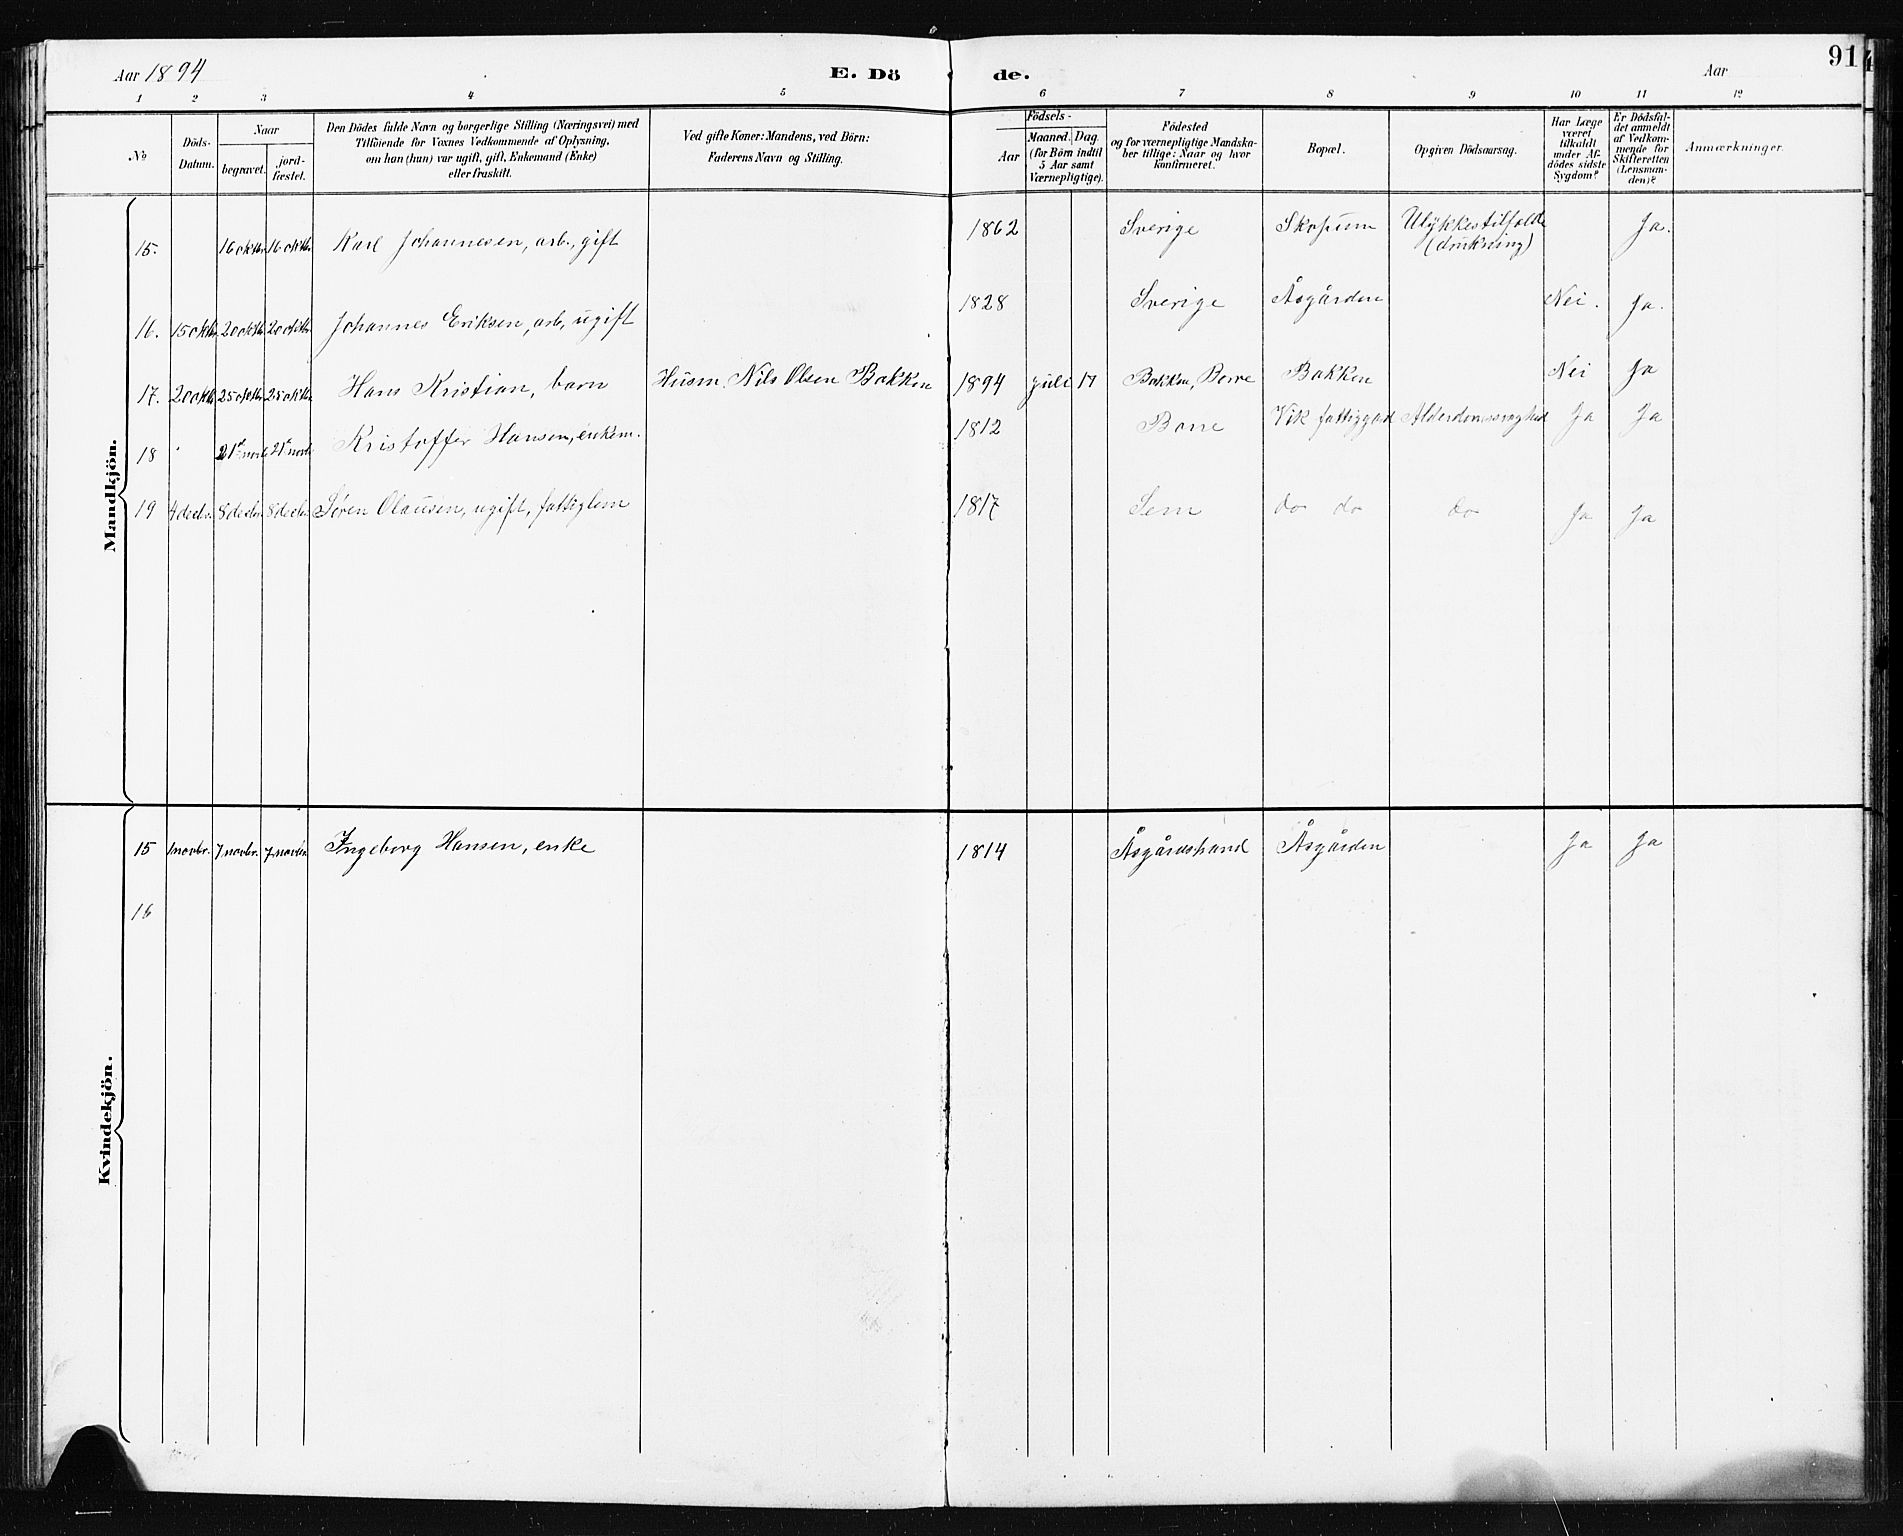 Aar 1894
E. Dö de.
Aar
91
1 2 3 4 5 6 7 8 9 10 11 12
No
Döds-Datum.
Naar
begravet.
jordfæstet.
Den Dödes fulde Navn og borgerlige Stilling (Næringsvei) med
Tilföiende for Voxnes Vedkommende af Oplysning,
om han (hun) var ugift, gift, Enkemand (Enke)
eller fraskilt.
Ved gifte Koner: Mandens, ved Börn:
Faderens Navn og Stilling.
Födsels-
Aar
Maaned. Dag.
(for Börn indtil
5 Aar samt
Værnepligtige).
Födested
og for værnepligtige Mandskaber tillige: Naar og hvor
konfirmeret.
Bopæl.
Opgiven Dödsaarsag.
Har Læge
været
tilkaldt
under Afdödes sidste
Sygdom?
Er Dödsfaldet anmeldt
af Vedkommende for
Skifteretten
(Lensmanden)?
Anmærkninger.
Mandkjön.
15. 16 oktbr. 16 oktbr. Karl Johannesen, arb., gift 1862 Sverige Skopum Ulykkestilfælde (drukning) Ja.
16. 15 oktbr. 20 oktbr. 20 oktbr. Johannes Eriksen, arb, ugift 1828 Sverige Åsgården Nei. Ja.
17. 20 oktbr. 25 oktbr. 25 oktbr. Hans Kristian, barn Husm. Nils Olsen Bakken 1894 juli 17 Bakken, Borre Bakken Nei Ja
18 21 novb. 21 novb. Kristoffer Hansen, enkem. 1812 Borre Vik fattiggård Alderdomssvaghed Ja Ja
19 4 decbr. 8 decbr. 8 decbr. Søren Olausen, ugift, fattiglem 1817 Sem do do do Ja Ja
Kvindekjön.
15 1 novbr. 7 novbr. 7 novbr. Ingeborg Hansen, enke 1814 Åsgårdstrand Åsgården Ja Ja
16